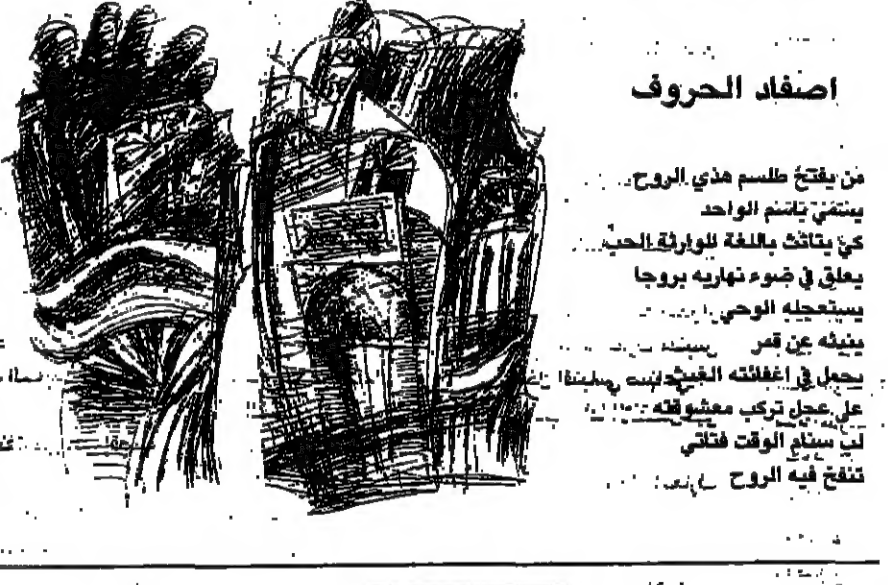 اصفاد الحروف
من يفتحُ طلسم هذي الروح
ينتمي باسم الواحد
كي يتأثث باللغة الوارثة الحب
يعلق في ضوء نهاريه بروجا
يستعجله الوحي
ينبئه عن قمر
يحمل في إغفائته الغيث
على عجل تركب معشوقته
لب سنام الوقت فتأتي
تنفخ فيه الروح